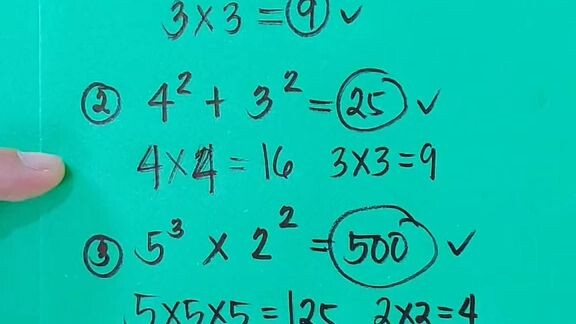 3×3=9 ✓
② 4² + 3² = 25 ✓
4×4=16 3×3=9
③ 5³ × 2² = 500 ✓
5×5×5=125 2×2=4